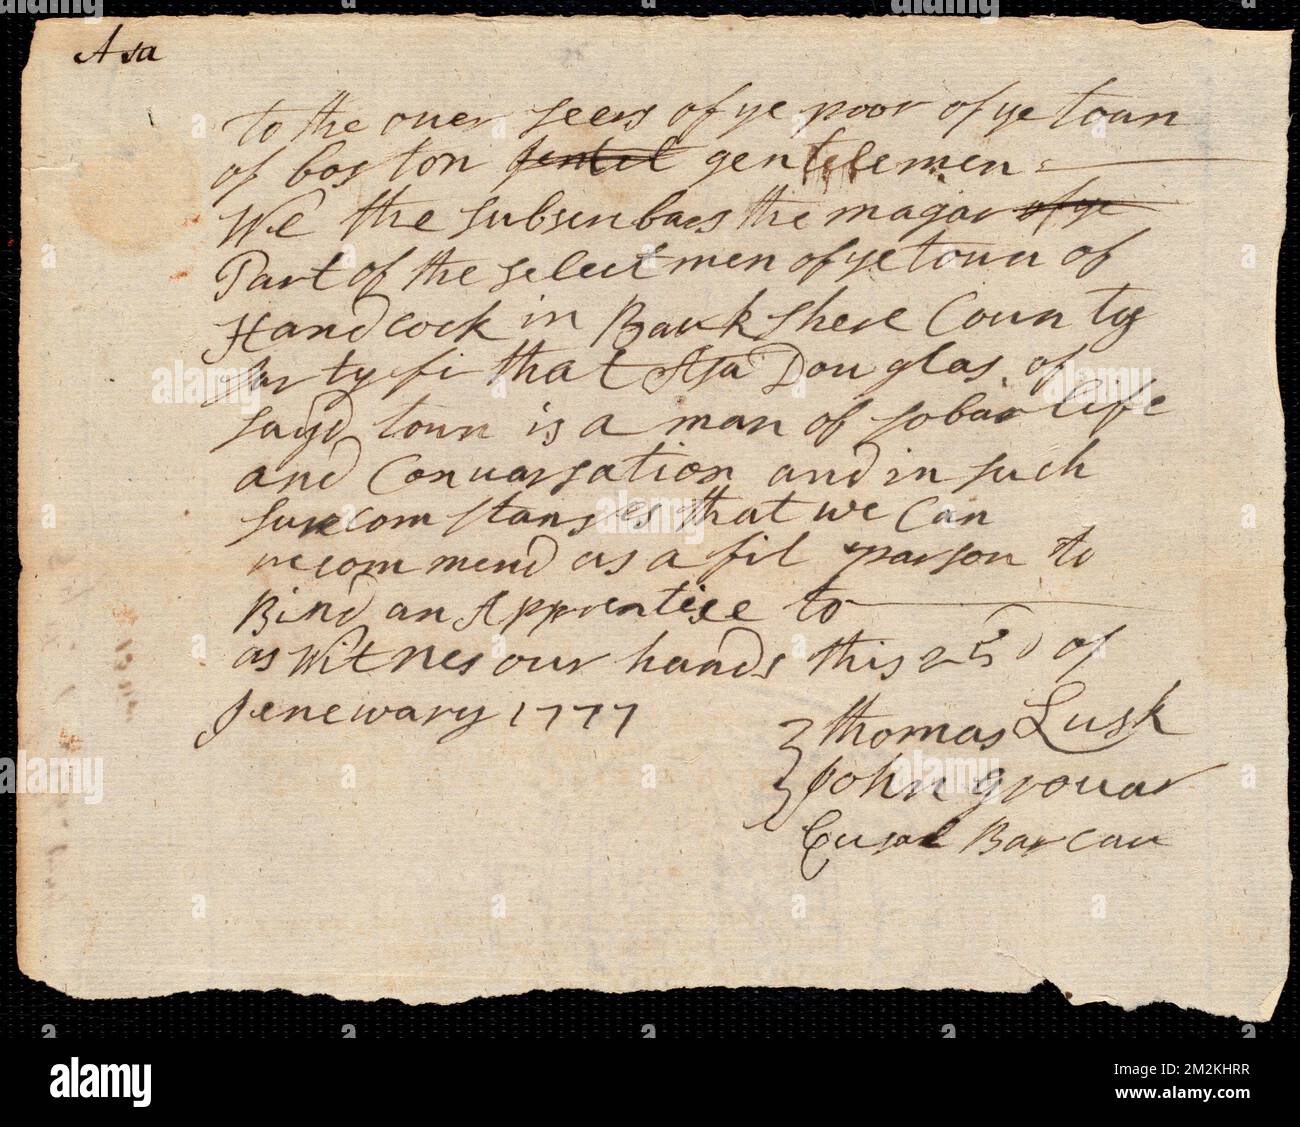 Asa
to the over seers of ye poor of ye toun
of boston gentelemen
We the subscribars the magar of ye
Part of the select men of ye toun of
Handcock in Barkshere County
sartyfi that Asa Douglas of
sayd toun is a man of sobar life
and Convarsation and in such
surcomstanses that we Can
recommend as a fit parson to
Bind an Apprentice to
as Witnes our hands this of
Jenewary 1777
thomas Lusk
John grovar
Barcau
alamy
Image ID: 2M2KHRR
www.alamy.com